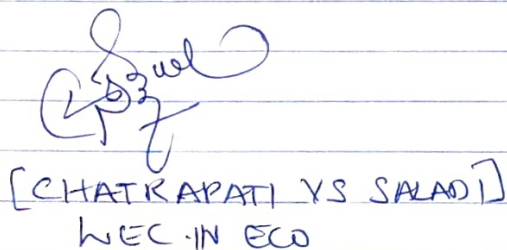 [CHATRAPATI VS SALADI]
LEC.IN ECO